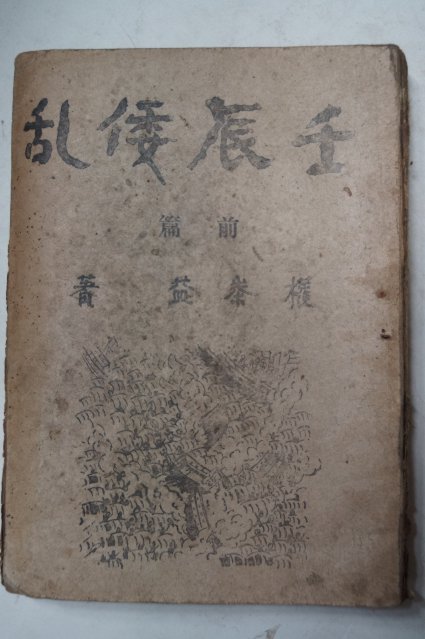 壬辰倭乱
前篇
權泰益著